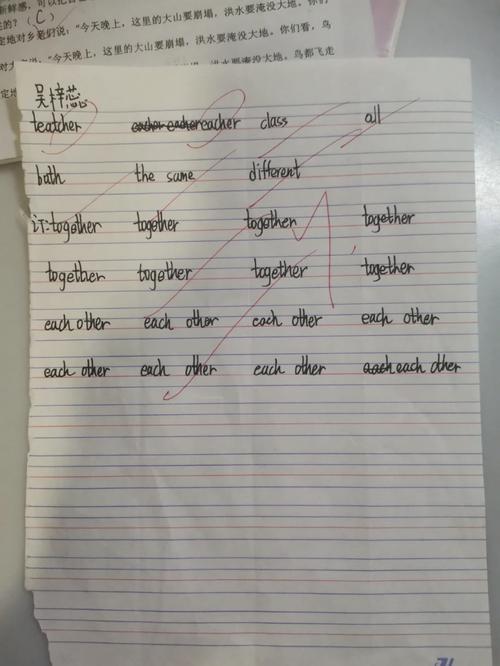 新鲜感，可以把
的？（C）
定地对乡亲们说：“今天晚上，这里的大山要崩塌，洪水要淹没大地。你们
说：“今天晚上，这里的大山要崩塌，洪水要淹没大地。你们看，鸟
洪水要淹没大地。鸟都飞走
吴梓蕊
teatcher eacher eacher eacher class all
bath the same different
订:together together together together
together together together together
each other each other each other each other
each other each other each other each each other